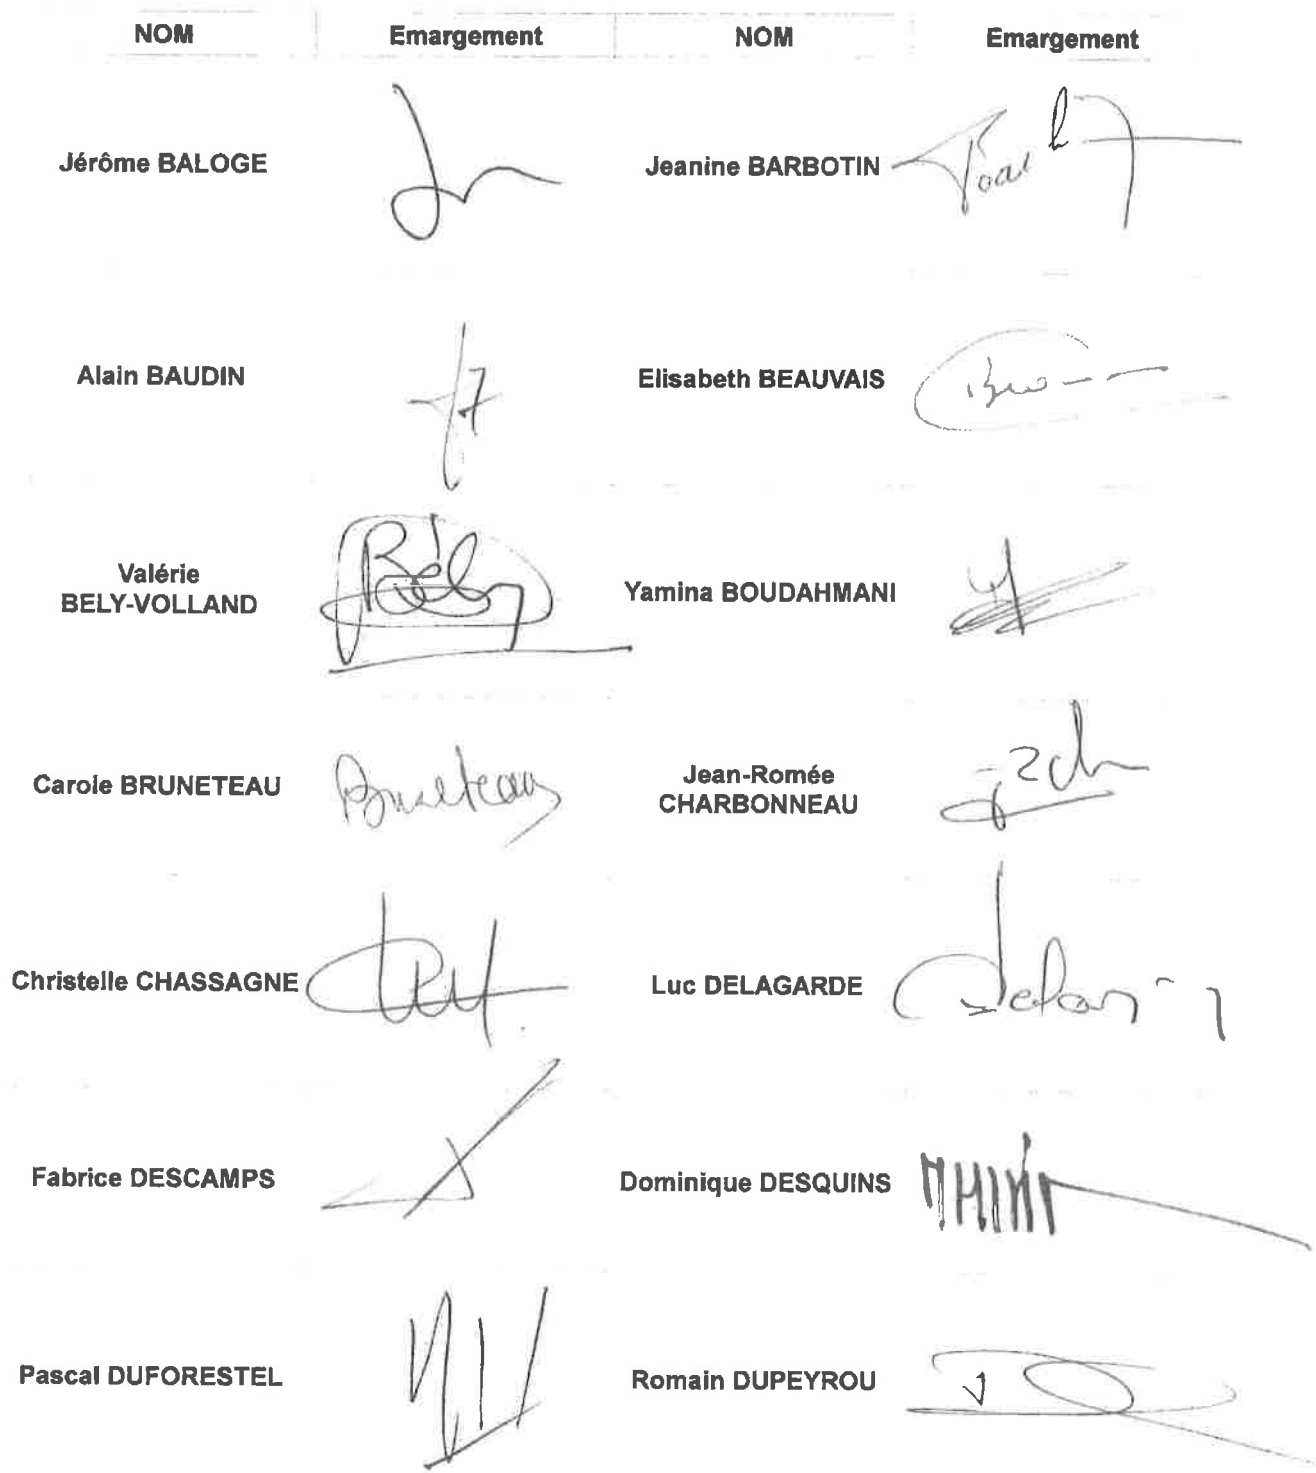 NOM Emargement NOM Emargement
Jérôme BALOGE Jeanine BARBOTIN
Alain BAUDIN Elisabeth BEAUVAIS
Valérie
BELY-VOLLAND Yamina BOUDAHMANI
Bély
Carole BRUNETEAU Bruneteau Jean-Romée
CHARBONNEAU
Christelle CHASSAGNE Luc DELAGARDE
Fabrice DESCAMPS Dominique DESQUINS
Pascal DUFORESTEL Romain DUPEYROU